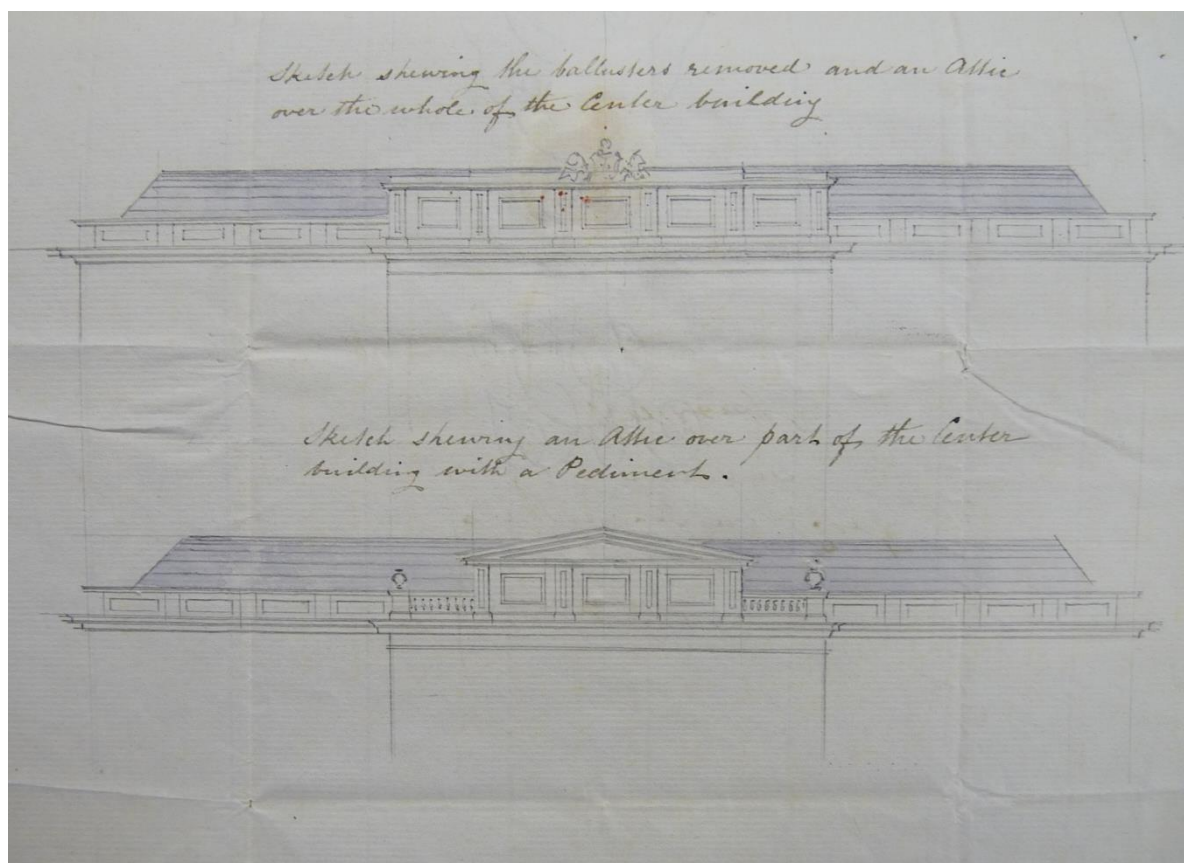 Sketch shewing the ballusters removed and an Attic
over the whole of the Center building
Sketch shewing an Attic over part of the Center
building with a Pediment.